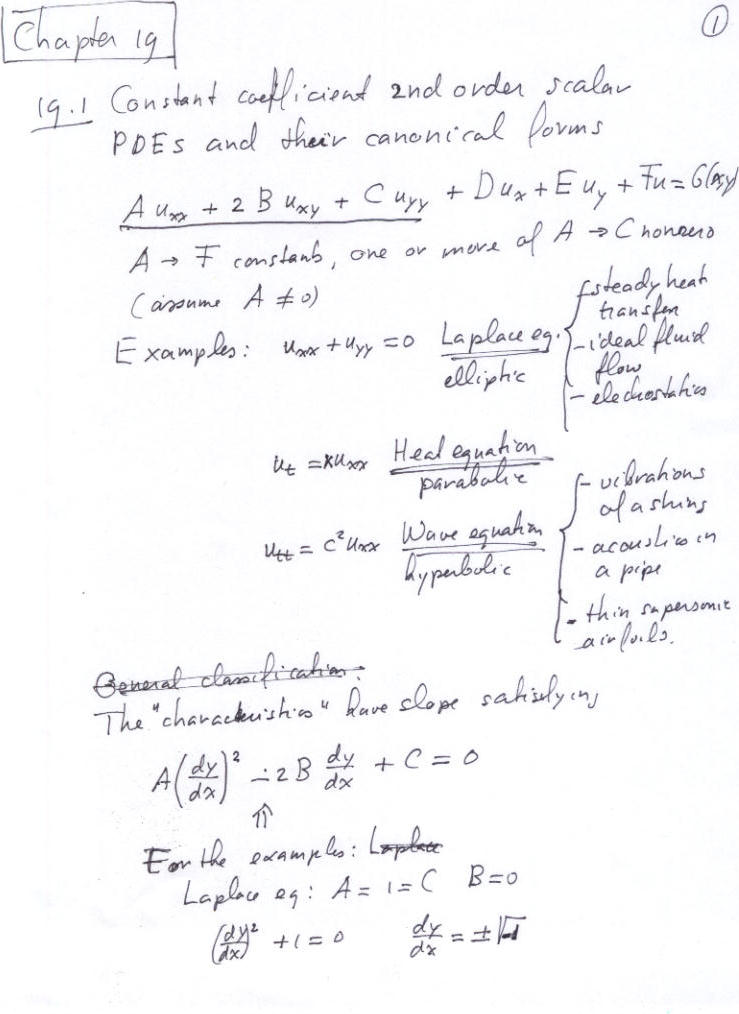 ①
Chapter 19
19.1 Constant coefficient 2nd order scalar
PDEs and their canonical forms
A uxx + 2 B uxy + C uyy + D ux + E uy + Fu = G(x,y)
A → F constants, one or more of A → C nonzero
(assume A ≠ 0)
Examples: uxx + uyy = 0 Laplace eq.
elliptic
- steady heat
transfer
- ideal fluid
flow
- electrostatics
ut = κuxx Heat equation
parabolic
utt = c²uxx Wave equation
hyperbolic
- vibrations
of a string
- acoustics in
a pipe
- thin supersonic
airfoils.
General classification:
The "characteristics" have slope satisfying
A(dy/dx)² - 2B dy/dx + C = 0
⇑
For the examples: Laplace
Laplace eq: A = 1 = C B = 0
(dy/dx)² + 1 = 0 dy/dx = ±√-1